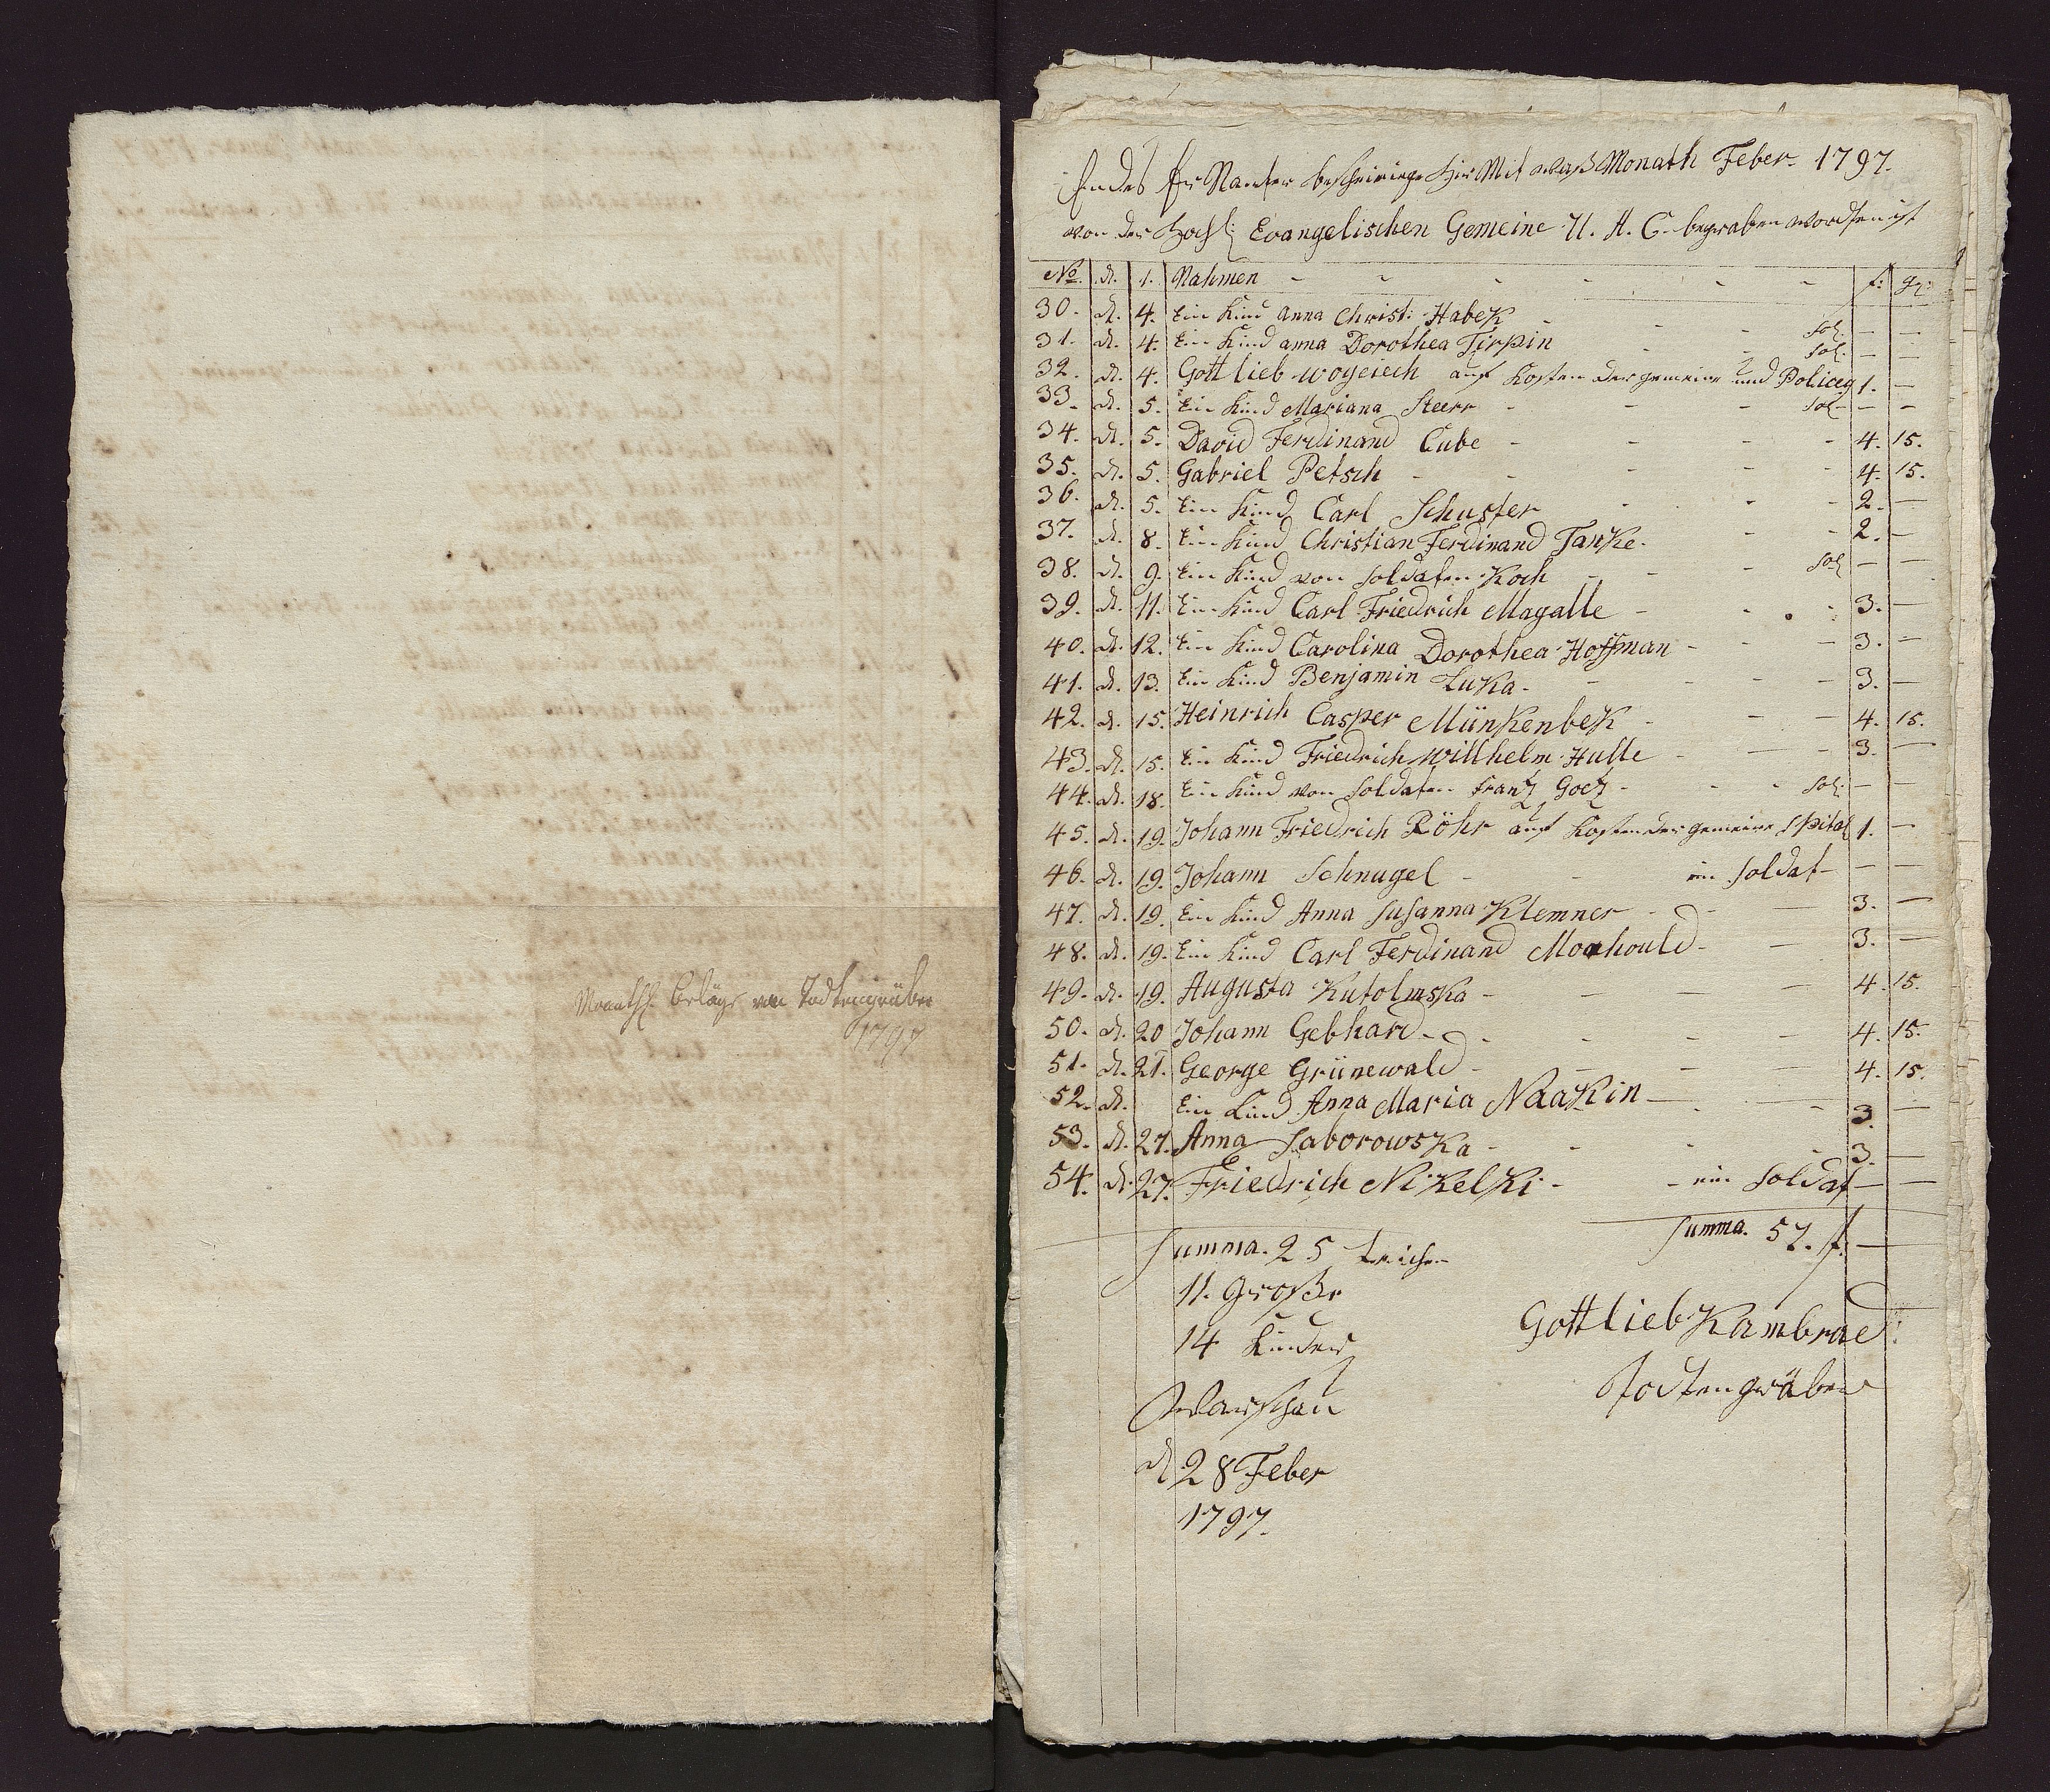 Monathl. Beläge vom Todtengräber
1797
Endes Es Nanter bescheinige hir Mit waß Monath Feber. 1797.
von der Hochl: Evangelischen Gemeine U. A. C. begraben worden ist
No. d. 1. Nahmen - - - - - - f: gr:
30. d. 4. Ein Kind anna Christ: Habek - - - sol. — —
31. d. 4. Ein Kind anna Dorothea Tirpin - - sol. — —
32. d. 4. Gottlieb Woyciech auf Kosten der gemeine und Policey 1. —
33. d. 5. Ein Kind Mariana Steerr - - - sol. — —
34. d. 5. David Ferdinand Cube - - - - 4. 15.
35. d. 5. Gabriel Petsch - - - - - 4. 15.
36. d. 5. Ein Kind Carl Schuster - - - 2. —
37. d. 8. Ein Kind Christian Ferdinand Tanke. - - 2. —
38. d. 9. Ein Kind von Soldaten Koch - - - sol. — —
39. d. 11. Ein Kind Carl Friedrich Magalle - - - 3. —
40. d. 12. Ein Kind Carolina Dorothea Hoffman - - - 3. —
41. d. 13. Ein Kind Benjamin Luka. - - - - 3. —
42. d. 15. Heinrich Casper Münkenbek - - - 4. 15.
43. d. 15. Ein Kind Friedrich Willhelm Hulle - - - 3. —
44. d. 18. Ein Kind von Soldaten Frantz Goetz - - - sol. — —
45. d. 19. Johann Friedrich Röhr auf Kosten der gemeine Spital 1. —
46. d. 19. Johann Schnugel - - ein Soldat — —
47. d. 19. Ein Kind Anna Susanna Klemner - - - 3. —
48. d. 19. Ein Kind Carl Ferdinand Morhould - - 3. —
49. d. 19. Augusta Kutolmska - - - - 4. 15.
50. d. 20 Johann Gebhard - - - - - 4. 15.
51. d. 21. George Grünewald - - - - 4. 15.
52. d. Ein Kind Anna Maria Naakin - - - 3. —
53. d. 27. Anna Saborowska - - - - 3. —
54. d. 27. Friedrich Nikelki - - ein Soldat — —
Summa. 25 Leichen
Summa. 57. f. —
11. Große
14 Kinder
Gottlieb Kambrad:
Todtengräber
Warschau
d. 28 Feber
1797.